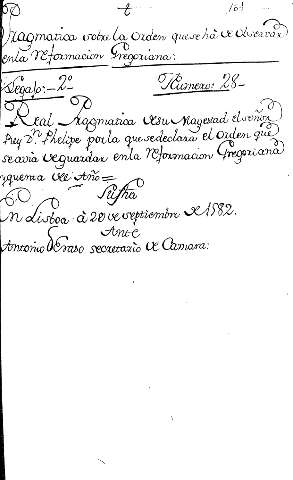 t 101
Pragmatica sobre la orden que se há de observar
en la reformacion Gregoriana:
Legajo:-2º- Numero: 28-
Real Pragmatica de su Magestad el señor
Rey Dn. Phelipe por la que se declara el orden que
se avia de guardar en la reformacion Gregoriana
y quenta del Año=
Su fha
En Lisboa á 20 de septiembre de 1582.
Ante
Antonio de Eraso secretario de Camara: